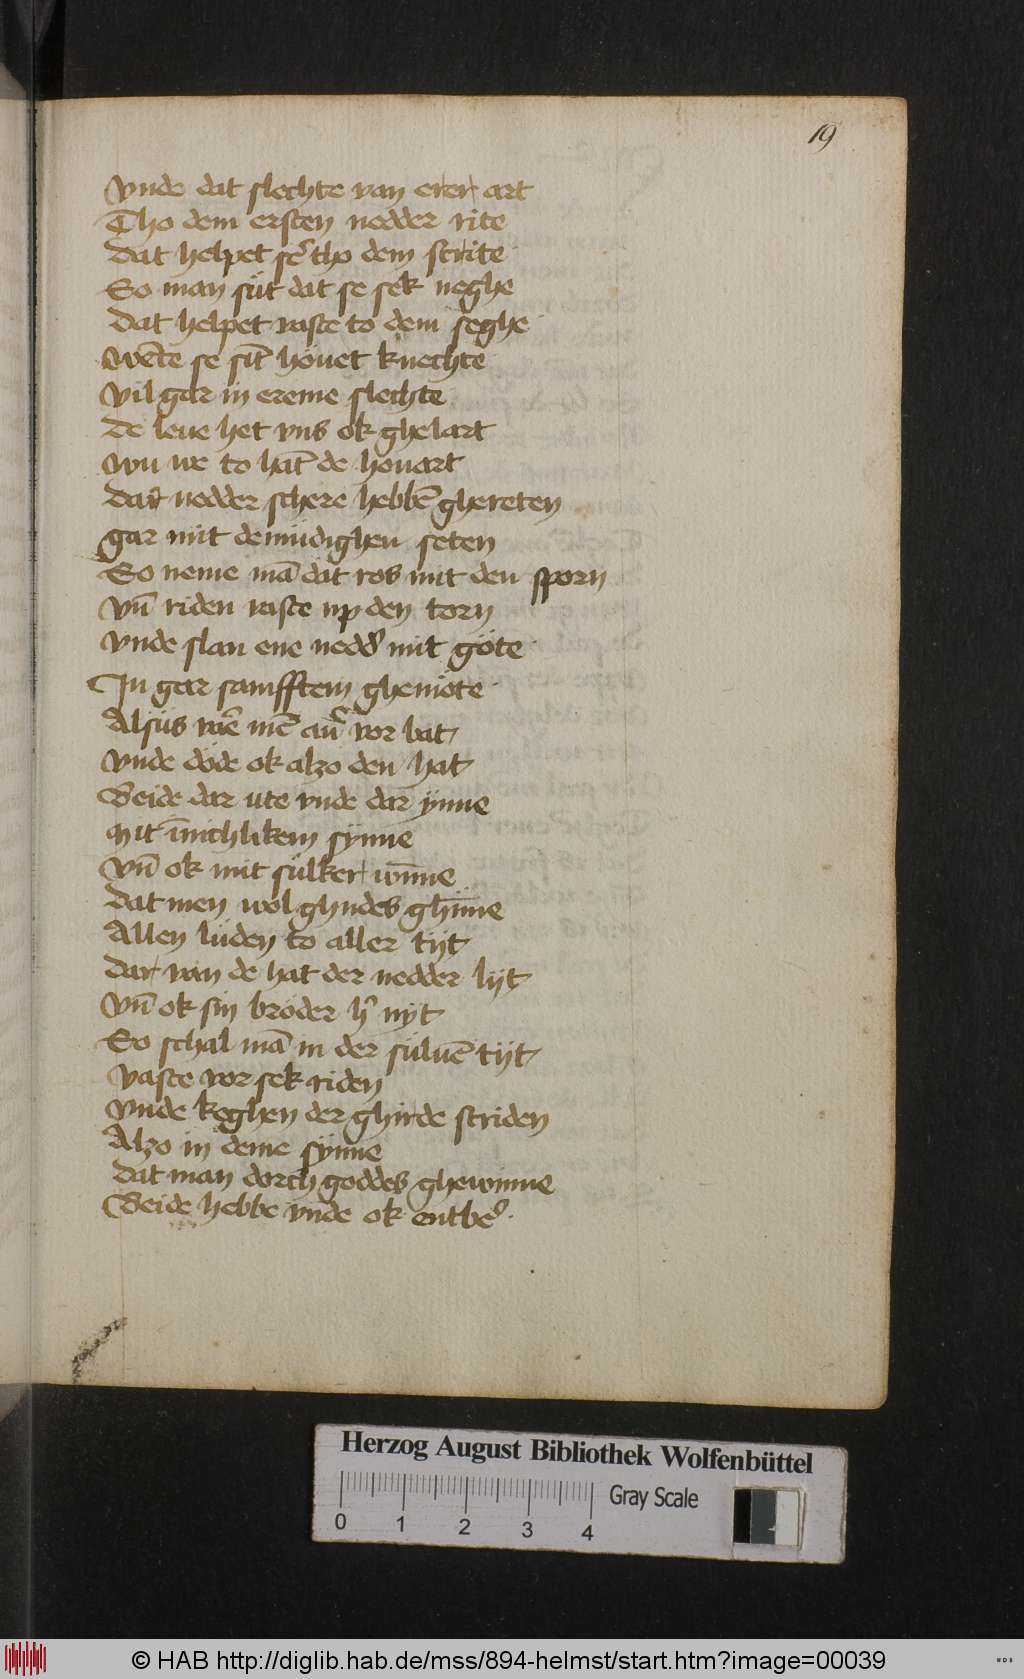 19
Vnde dat slechte van erer art
Tho dem ersten nedder rite
Dat helpet ser̄ tho dem strite
So man süt dat se sek neghe
Dat helpet vaste to dem seghe
Wēte se sīt höuet knechte
Vil gar in ereme slechte
De leue het vns ok ghelart
Wu we to hāt de houart
Dar nedder schere hebbē ghereten
gar mit demüdighen seten
So neme mā dat ros mit den sporn
Vn̄ riden vaste up den torn
Vnde slan ene nedd' mit göte
In gar sanfftem ghemöte
Alsüs vor bat
Vnde döde ok alzo den hat
Beide dar ute vnde dar ynne
Mit īnichlikem synne
Vn̄ ok mit sülker wn̄ne
Dat men wol ghudes ghn̄ne
Allen lüden to aller tijt
Dar van de hat der nedder lijt
Vn̄ ok sin bröder h' nijt
So schal mā in der süluē tijt
Vaste vor sek riden
Vnde keghen der ghirde striden
Alzo in deme synne
Dat man dorch goddes ghewinne
Beide hebbe vnde ok entbe'
Herzog August Bibliothek Wolfenbüttel
0 1 2 3 4
Gray Scale
© HAB http://diglib.hab.de/mss/894-helmst/start.htm?image=00039